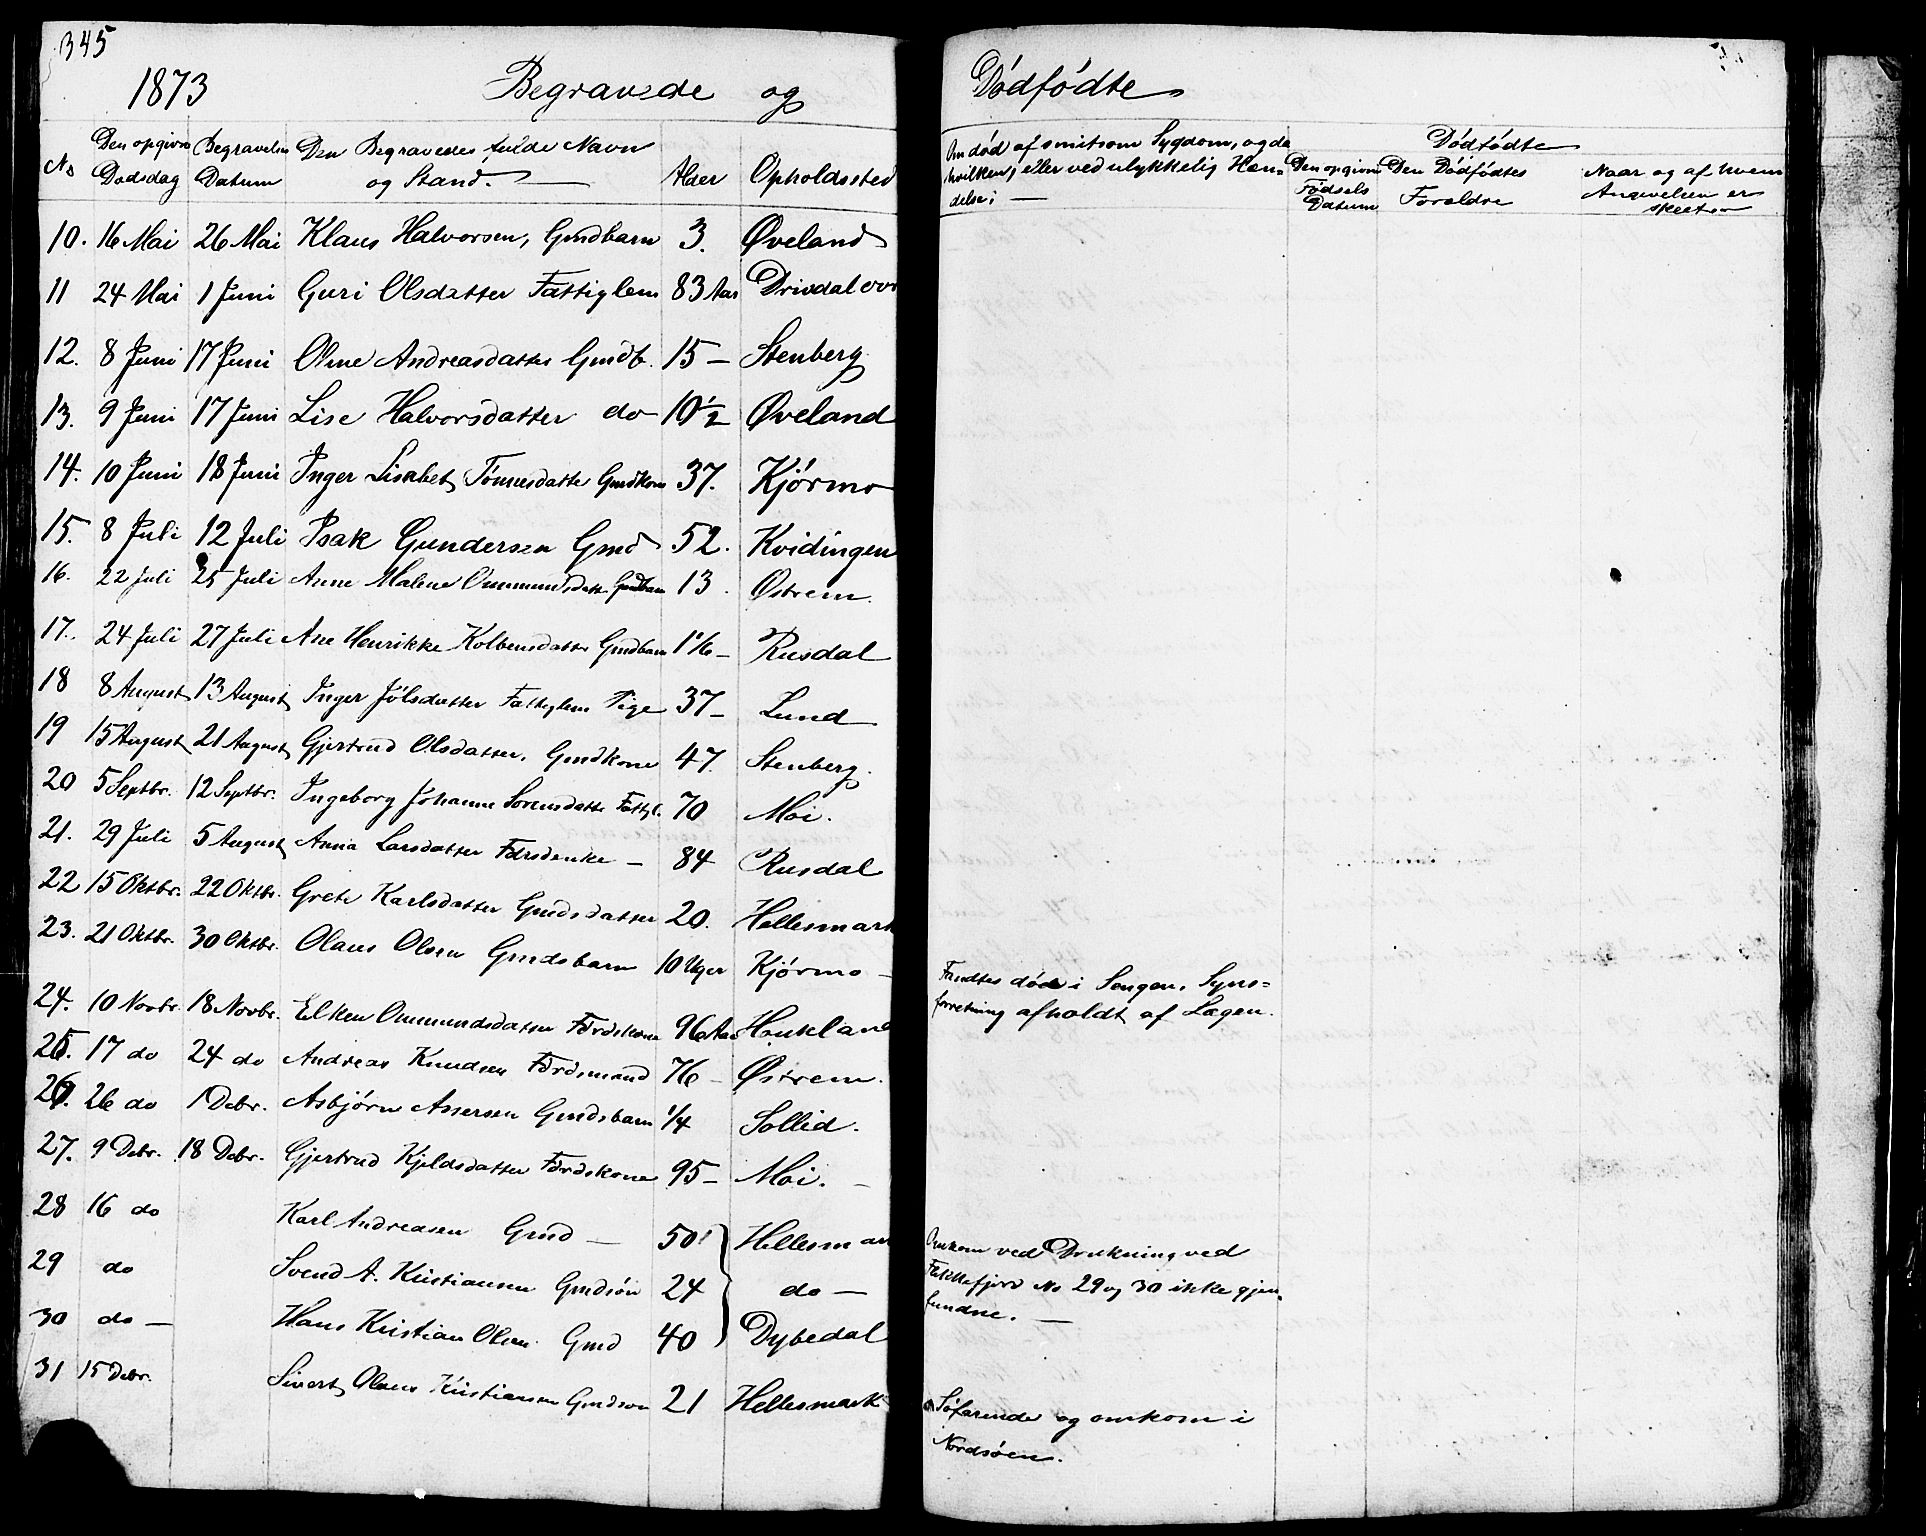 345
1873 Begravede og Dödfödte
No Den opgivne Dödsdag Begravelses Datum Den Begravedes fulde Navn og Stand. Alder Opholdssted
Om död af smitsom Sygdom, og da hvilken; eller ved ulykkelig Hæn-delse;
Dödfödte
Den opgivne Födsels Datum Den Dödfödtes Forældre Naar og af hvem Angivelsen er skeet
10. 16 Mai 26 Mai Klaus Halvorsen, Gmdbarn 3. Øveland
11 24 Mai 1 Juni Guri Olsdatter Fattiglem 83 Aar Drivdal
12. 8 Juni 17 Juni Oline Andreasdatter Gmdb. 15 – Stenberg
13. 9 Juni 17 Juni Lise Halvorsdatter do 10½ Øveland
14. 10 Juni 18 Juni Inger Lisabet Tönnesdatter Gmdkone 37. Kjörmo
15. 8 Juli 12 Juli Isak Gundersen Gmd 52. Kvidingen
16. 22 Juli 25 Juli Anne Malene Ommundsdatt Gmdbarn 13. Østrem.
17. 24 Juli 27 Juli Ane Henrikke Kolbensdatter Gmdbarn Rusdal
18 8 August 13 August Inger Jölsdatter Fattiglem Pige 37 – Lund
19 15 August 21 August Gjertrud Olsdatter, Gmdkone 47. Stenberg.
20 5 Septbr. 12 Septbr. Ingeborg Johanne Sorensdatter Fattgl. 70 Moi.
21. 29 Juli 5 August Anna Larsdatter – 84 Rusdal
22 15 Oktbr. 22 Oktbr. Grete Karlsdatter Gmdsdatter 20. Hellesmark
23. 21 Oktbr. 30 Oktbr. Olaus Olsen Gmdsbarn 10 Uger Kjörmo –
Fandtes död i Sengen. Syns-
forretning afholdt af Lægen.
24. 10 Novbr. 18 Novbr. Elken Ommundsdatter Fdrdskone 96 Aar Haukland
25. 17 do 24 do Andreas Knudsen Fdrdsmand 76 – Østrem.
26. 26 do 1 Debr. Asbjörn Assersen Gmdsbarn ¼ Sollid.
27. 9 Debr. 18 Debr. Gjertrud Kjeldsdatter Fdrdskone 95 – Moi. –
28 16 do Karl Andreasen Gmd – 50 Hellesmark
29 do Svend A. Kristiansen Gmdsön 24 do –
30 do – Hans Kristian Olsen. Gmd 40 Dybedal
Omkom ved Drukning ved
Fækkefjord No 29 og 30 ikke gjen-
fundne. –
31 15 Debr. Sivert Olaus Kristiansen Gmdsøn 21 Hellesmark
Söfarende og omkom i
Nordsöen.